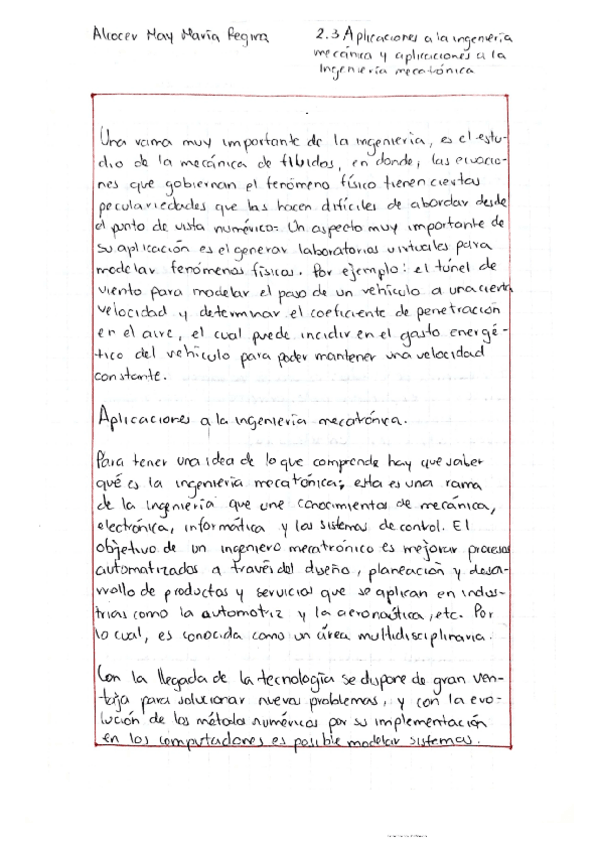 Alcocer May María Regina
2.3 Aplicaciones a la ingeniería
mecánica y aplicaciones a la
Ingeniería mecatrónica
Una rama muy importante de la ingeniería, es el estu-
dio de la mecánica de fluidos, en donde, las ecuacio-
nes que gobiernan el fenómeno físico tienen ciertas
peculariedades que las hacen difíciles de abordar desde
el punto de vista numérico. Un aspecto muy importante de
su aplicación es el generar laboratorios virtuales para
modelar fenómenos físicos. Por ejemplo: el túnel de
viento para modelar el paso de un vehículo a una cierta
velocidad y determinar el coeficiente de penetración
en el aire, el cual puede incidir en el gasto energé-
tico del vehículo para poder mantener una velocidad
constante.
Aplicaciones a la ingeniería mecatrónica.
Para tener una idea de lo que comprende hay que saber
qué es la ingeniería mecatónica; esta es una rama
de la ingeniería que une conocimientos de mecánica,
electrónica, informática y los sistemas de control. El
objetivo de un ingeniero mecatrónico es mejorar procesos
automatizados a través del diseño, planeación y desa-
rrollo de productos y servicios que se aplican en indus-
trias como la automotriz y la aeronaútica, etc. Por
lo cual, es conocida como un área multidisciplinaria.
Con la llegada de la tecnología se dispone de gran ven-
taja para solucionar nuevos problemas, y con la evo-
lución de los métodos numéricos por su implementación
en los computadores es posible modelar sistemas.